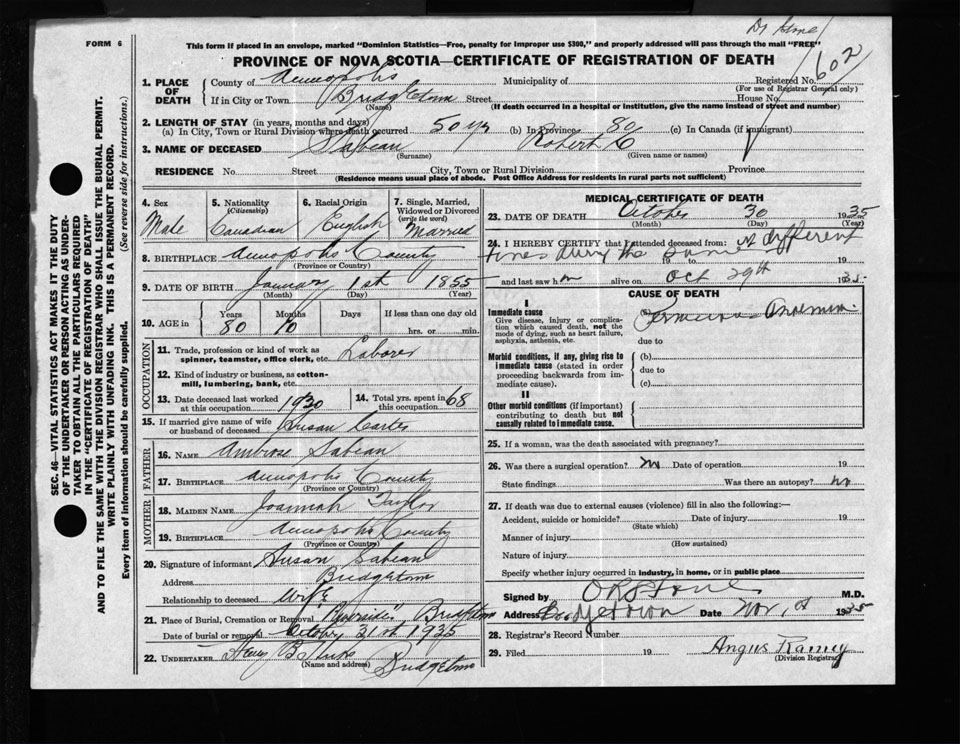 Dr Stone
FORM 6
This form if placed in an envelope, marked "Dominion Statistics—Free, penalty for improper use $300," and properly addressed will pass through the mail "FREE"
PROVINCE OF NOVA SCOTIA—CERTIFICATE OF REGISTRATION OF DEATH
602
1. PLACE OF DEATH County of Annapolis Municipality of Registered No.
(For use of Registrar General only)
If in City or Town Bridgetown Street House No.
(Name) (If death occurred in a hospital or institution, give the name instead of street and number)
2. LENGTH OF STAY (in years, months and days)
(a) In City, Town or Rural Division where death occurred 50 yrs (b) In Province 80 (c) In Canada (if immigrant)
3. NAME OF DECEASED Sabean Robert
(Surname) (Given name or names)
RESIDENCE No. Street City, Town or Rural Division Province
(Residence means usual place of abode. Post Office Address for residents in rural parts not sufficient)
4. Sex 5. Nationality (Citizenship) 6. Racial Origin 7. Single, Married, Widowed or Divorced (write the word)
Male Canadian English Married
8. BIRTHPLACE Annapolis County
(Province or Country)
9. DATE OF BIRTH January 1st 1855
(Month) (Day) (Year)
10. AGE in Years Months Days If less than one day old
80 10 hrs. or min.
OCCUPATION
11. Trade, profession or kind of work as spinner, teamster, office clerk, etc. Laborer
12. Kind of industry or business, as cotton-mill, lumbering, bank, etc.
13. Date deceased last worked at this occupation 1930 14. Total yrs. spent in this occupation 68
15. If married give name of wife or husband of deceased Susan
FATHER
16. NAME Ambrose Sabean
17. BIRTHPLACE Annapolis County
(Province or Country)
MOTHER
18. MAIDEN NAME Joannah Taylor
19. BIRTHPLACE Annapolis County
(Province or Country)
20. Signature of informant Susan Sabean
Address Bridgetown
Relationship to deceased Wife
21. Place of Burial, Cremation or Removal "Riverside", Bridgetown
Date of burial or removal October 31st 1935
22. UNDERTAKER B Bridgetown
(Name and address)
MEDICAL CERTIFICATE OF DEATH
23. DATE OF DEATH October 30 1935
(Month) (Day) (Year)
24. I HEREBY CERTIFY that I attended deceased from: at different
times during the 19 to 19
and last saw h m alive on Oct 29th 1935.
CAUSE OF DEATH
I
Immediate cause (a) Pernicious Anaemia
Give disease, injury or complication which caused death, not the mode of dying, such as heart failure, asphyxia, asthenia, etc.
due to
Morbid conditions, if any, giving rise to immediate cause (stated in order proceeding backwards from immediate cause).
(b)
due to
(c)
II
Other morbid conditions (if important) contributing to death but not causally related to immediate cause.
25. If a woman, was the death associated with pregnancy?
26. Was there a surgical operation? No Date of operation 19
State findings Was there an autopsy? No
27. If death was due to external causes (violence) fill in also the following:—
Accident, suicide or homicide? Date of injury 19
(State which)
Manner of injury
(How sustained)
Nature of injury
Specify whether injury occurred in industry, in home, or in public place
Signed by Stone M.D.
Address Bridgetown Date Nov. 1935
28. Registrar's Record Number
29. Filed 19 Angus Ramey
(Division Registrar)
SEC. 46—VITAL STATISTICS ACT MAKES IT THE DUTY
OF THE UNDERTAKER OR PERSON ACTING AS UNDER-
TAKER TO OBTAIN ALL THE PARTICULARS REQUIRED
IN THE "CERTIFICATE OF REGISTRATION OF DEATH"
AND TO FILE THE SAME WITH THE DIVISION REGISTRAR WHO SHALL ISSUE THE BURIAL PERMIT.
WRITE PLAINLY WITH UNFADING INK. THIS IS A PERMANENT RECORD.
Every item of information should be carefully supplied. (See reverse side for instructions.)